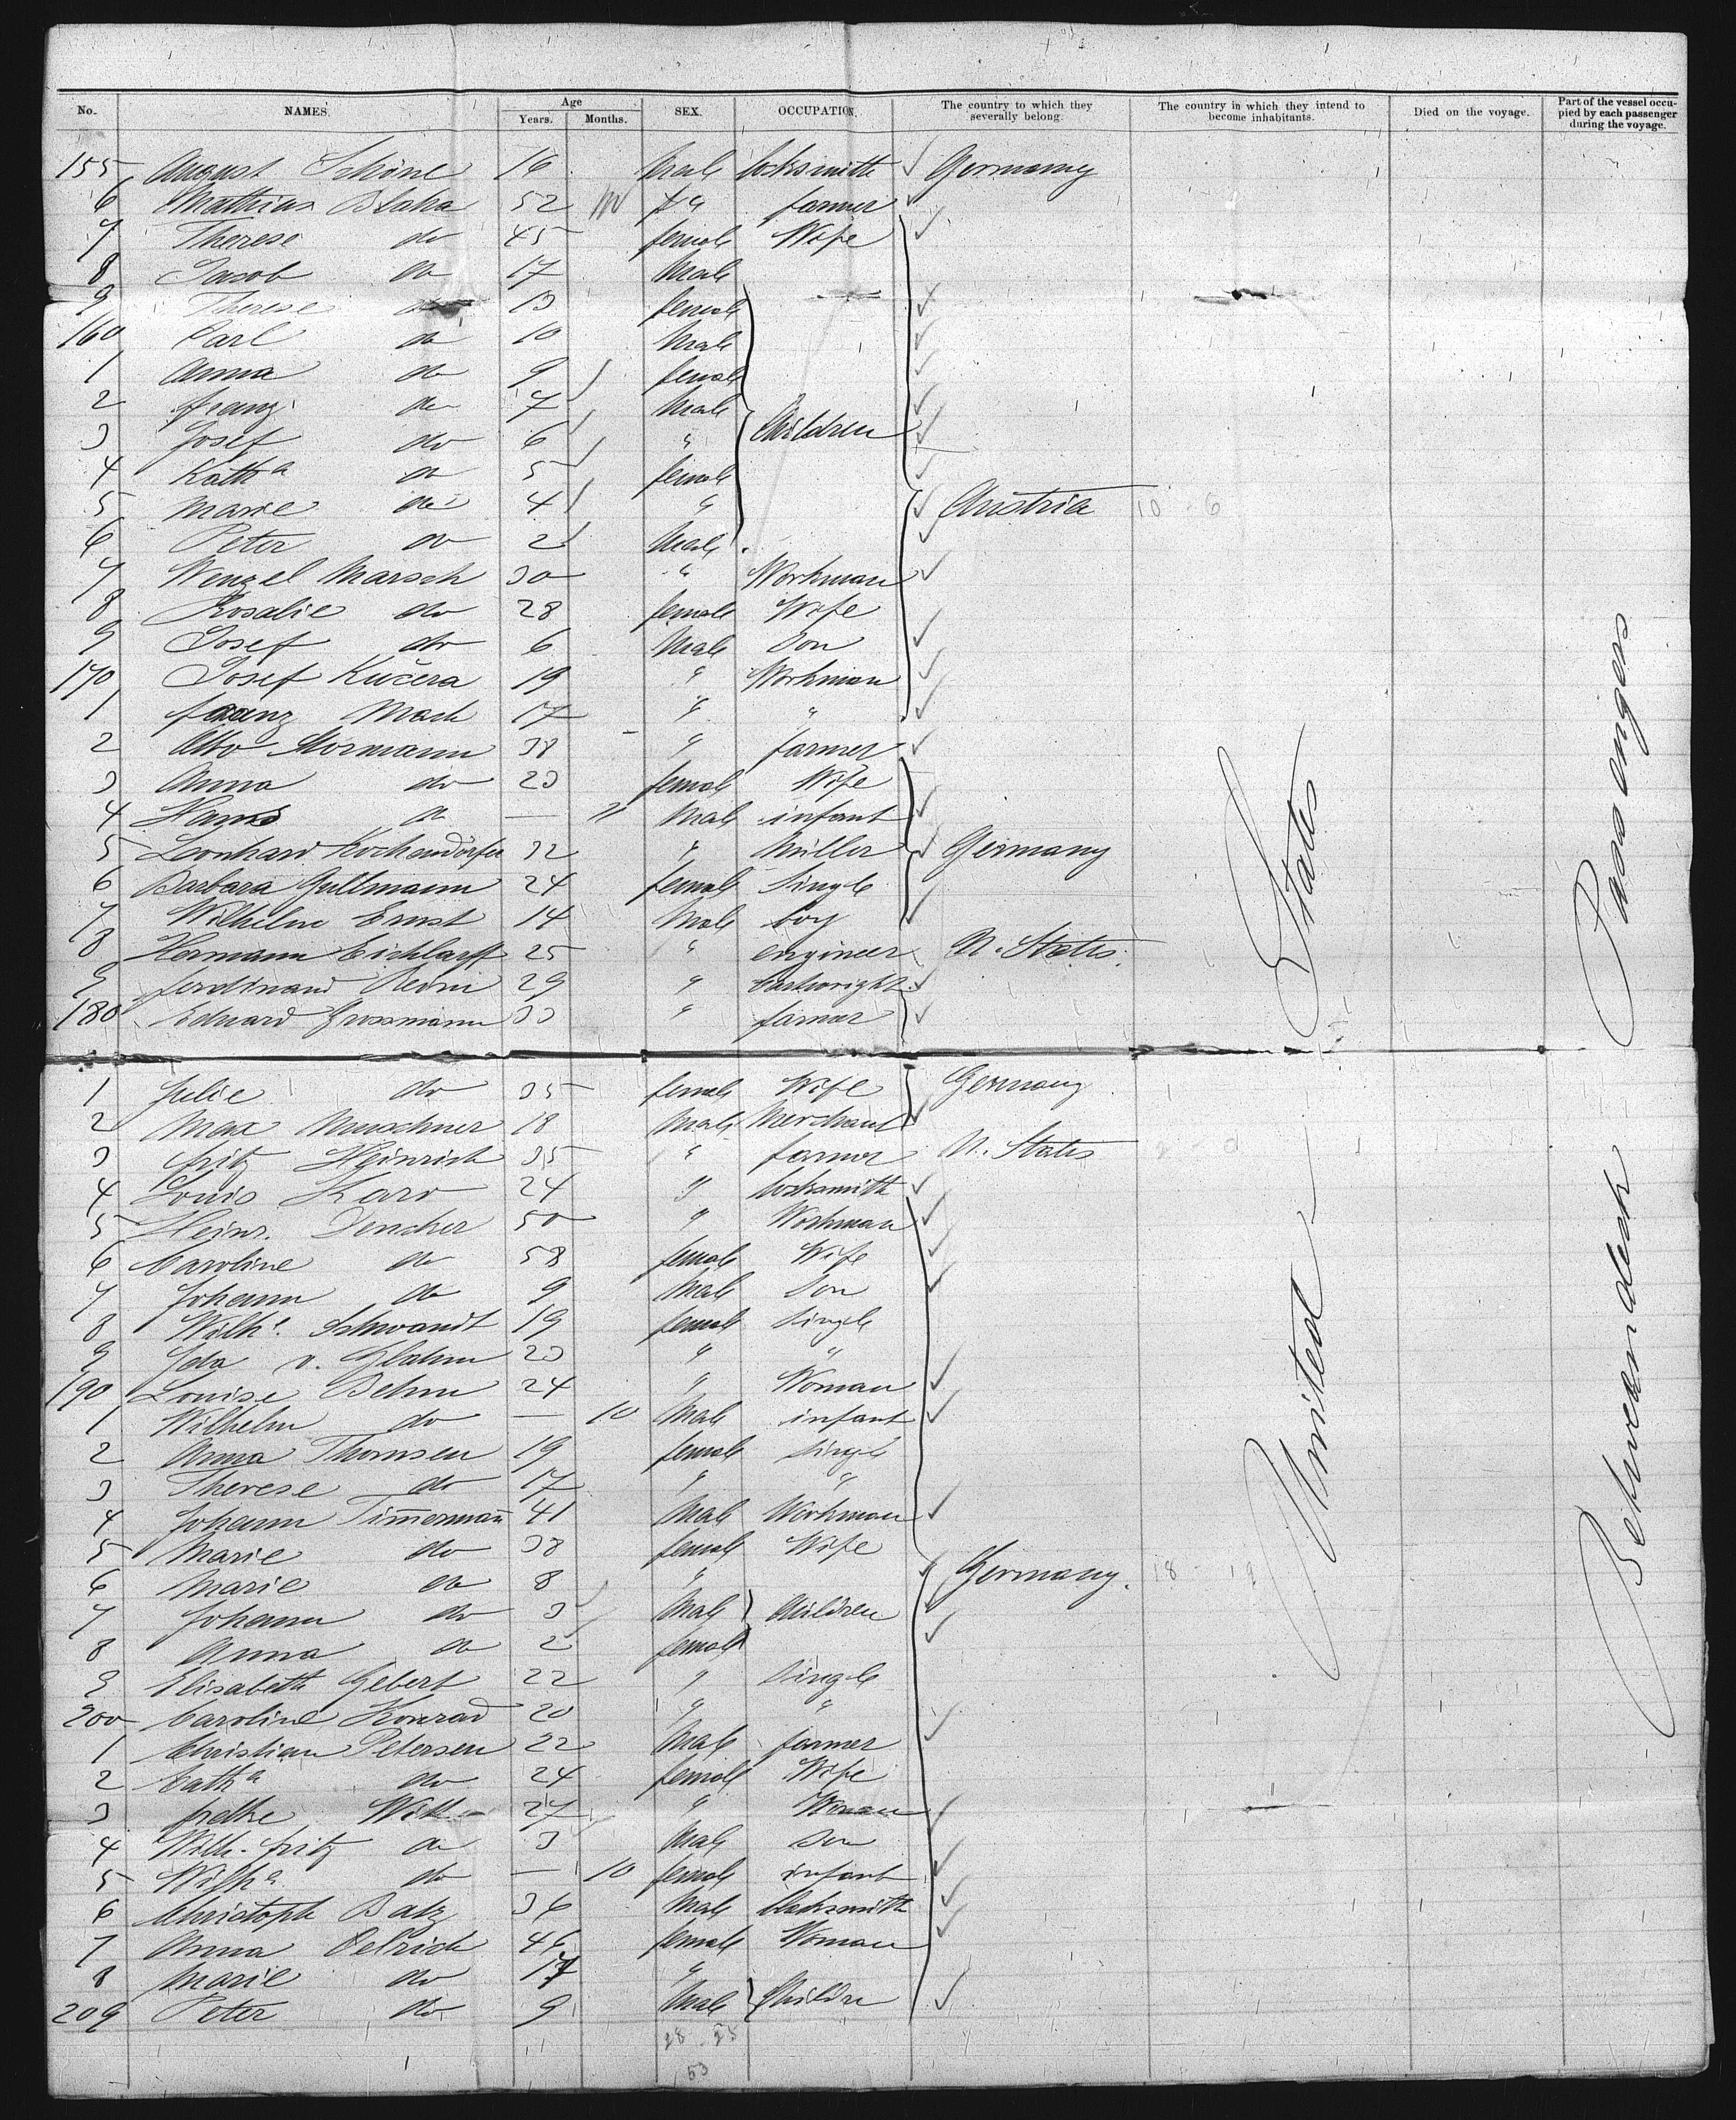 No. NAMES. Age Years. Months. SEX. OCCUPATION. The country to which they severally belong. The country in which they intend to become inhabitants. Died on the voyage. Part of the vessel occupied by each passenger during the voyage.
155 August Schöne 16 male locksmith Germany
6 Mathias Blaha 52 " farmer
7 Therese do 45 female Wife
8 Jacob do 17 Male
9 Therese do 13 female
160 Carl do 10 Male
1 Anna do 9 female
2 Franz do 7 Male
3 Josef do 6 " Children
4 Kath a do 5 female
5 Marie do 4 " Austria 10 - 6
6 Peter do 2 Male
7 Wenzel Marsch 30 " Workman
8 Rosalie do 28 female Wife
9 Josef do 6 Male Son
170 Josef Kučera 19 " Workman
1 Franz Mach 17 " "
2 Otto Mormann 38 " farmer
3 Anna do 23 female Wife
4 Hans do — 11 Male infant
5 Leonhard Kochendörfer 32 " Miller Germany
6 Barbara Gullmann 24 female Single
7 Wilhelm Ernst 14 Male boy
8 Hermann 25 " engineer U. States.
9 Ferdinand 29 " Cartwright
180 Eduard Grossmann 33 " farmer
1 Julie do 35 female Wife Germany
2 Max Muschner 18 Male Merchant
3 Fritz Heinrich 35 " farmer U. States
4 Louis Karo 24 " locksmith
5 Heinr. Dencher 50 " Workman
6 Caroline do 58 female Wife
7 Johann do 9 Male Son
8 Wilh e. Schwandt 19 female Single
9 Ida v. Glahn 23 " "
190 Louise Behm 24 " Woman
1 Wilhelm do — 10 Male infant
2 Anna Thomsen 19 female Single
3 Therese do 17 " "
4 Johann Timmermann 41 Male Workman
5 Marie do 38 female Wife
6 Marie do 8 " Germany. 18 - 19
7 Johann do 3 Male Children
8 Anna do 2 female
9 Elisabeth Gebert 22 " Single
200 Caroline Konrad 20 " "
1 Christian Petersen 22 Male farmer
2 Cath a do 24 female Wife
3 Witt 27 " Woman
4 Wilh. Fritz do 3 Male Son
5 Wilh e. do — 10 female infant
6 Christoph Batz 36 Male blacksmith
7 Anna Oelrich 46 female Woman
8 Marie do 17 "
209 Peter do 9 Male Children
28 - 25
53
United States
Between deck Passengers